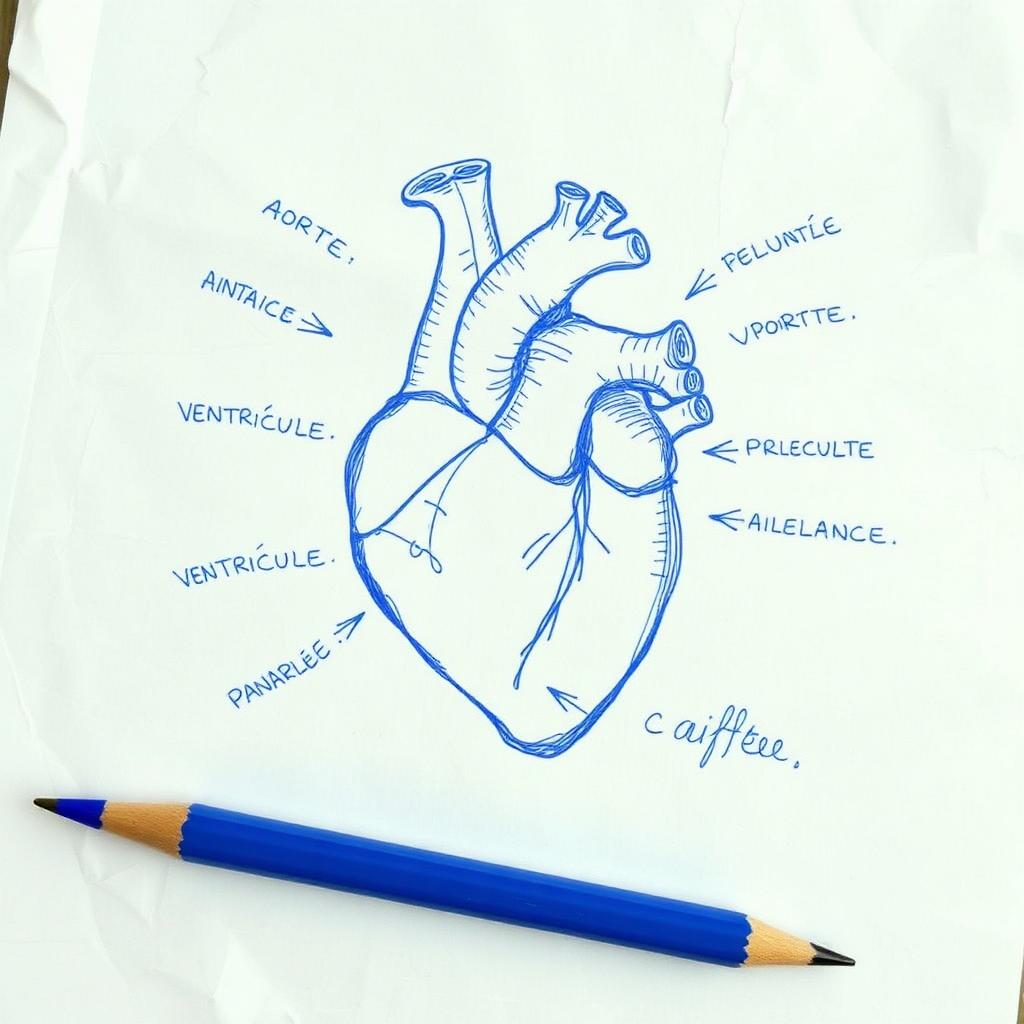 AORTE,
AINTAICE
VENTRIĆULE.
VENTRIĆULE.
PANARLÉE
PELUNTÍE
VPOIRTTE.
PRLECULTE
AILELANCE.